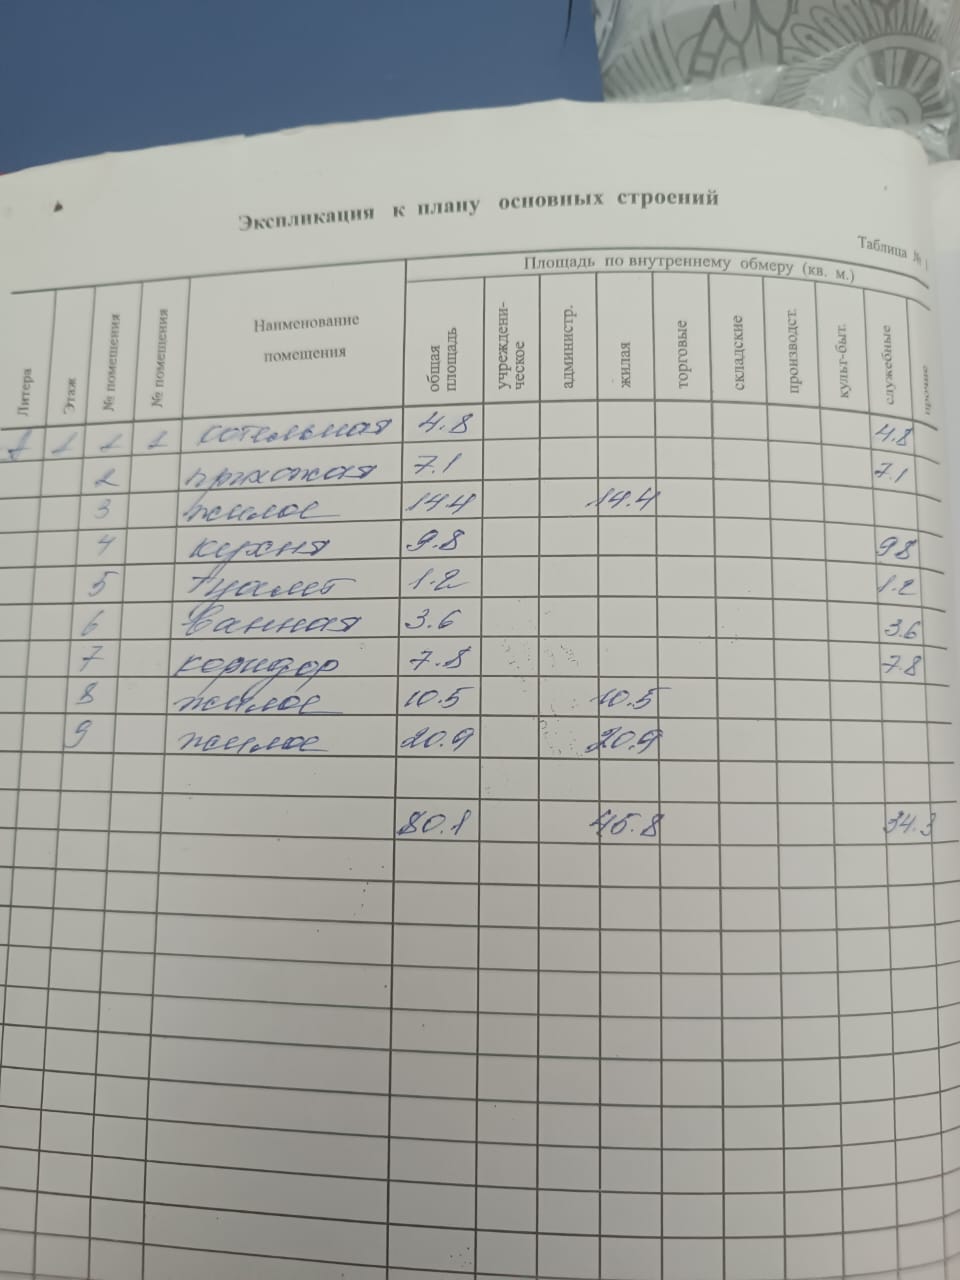 Экспликация к плану основных строений
Таблица №
Площадь по внутреннему обмеру (кв. м.)
Литера Этаж № помещения № помещения Наименование помещения общая площадь учреждени-ческое администр. жилая торговые складские производст. культ-быт. служебные прочие
1 1 1 1 котельная 4.8 4.8
2 прихожая 7.1 7.1
3 жилое 14.4 14.4
4 кухня 9.8 98
5 туалет 1.2 1.2
6 ванная 3.6 3.6
7 коридор 7.8 7.8
8 жилое 10.5 10.5
9 жилое 20.9 20.9
80.1 45.8 34.3